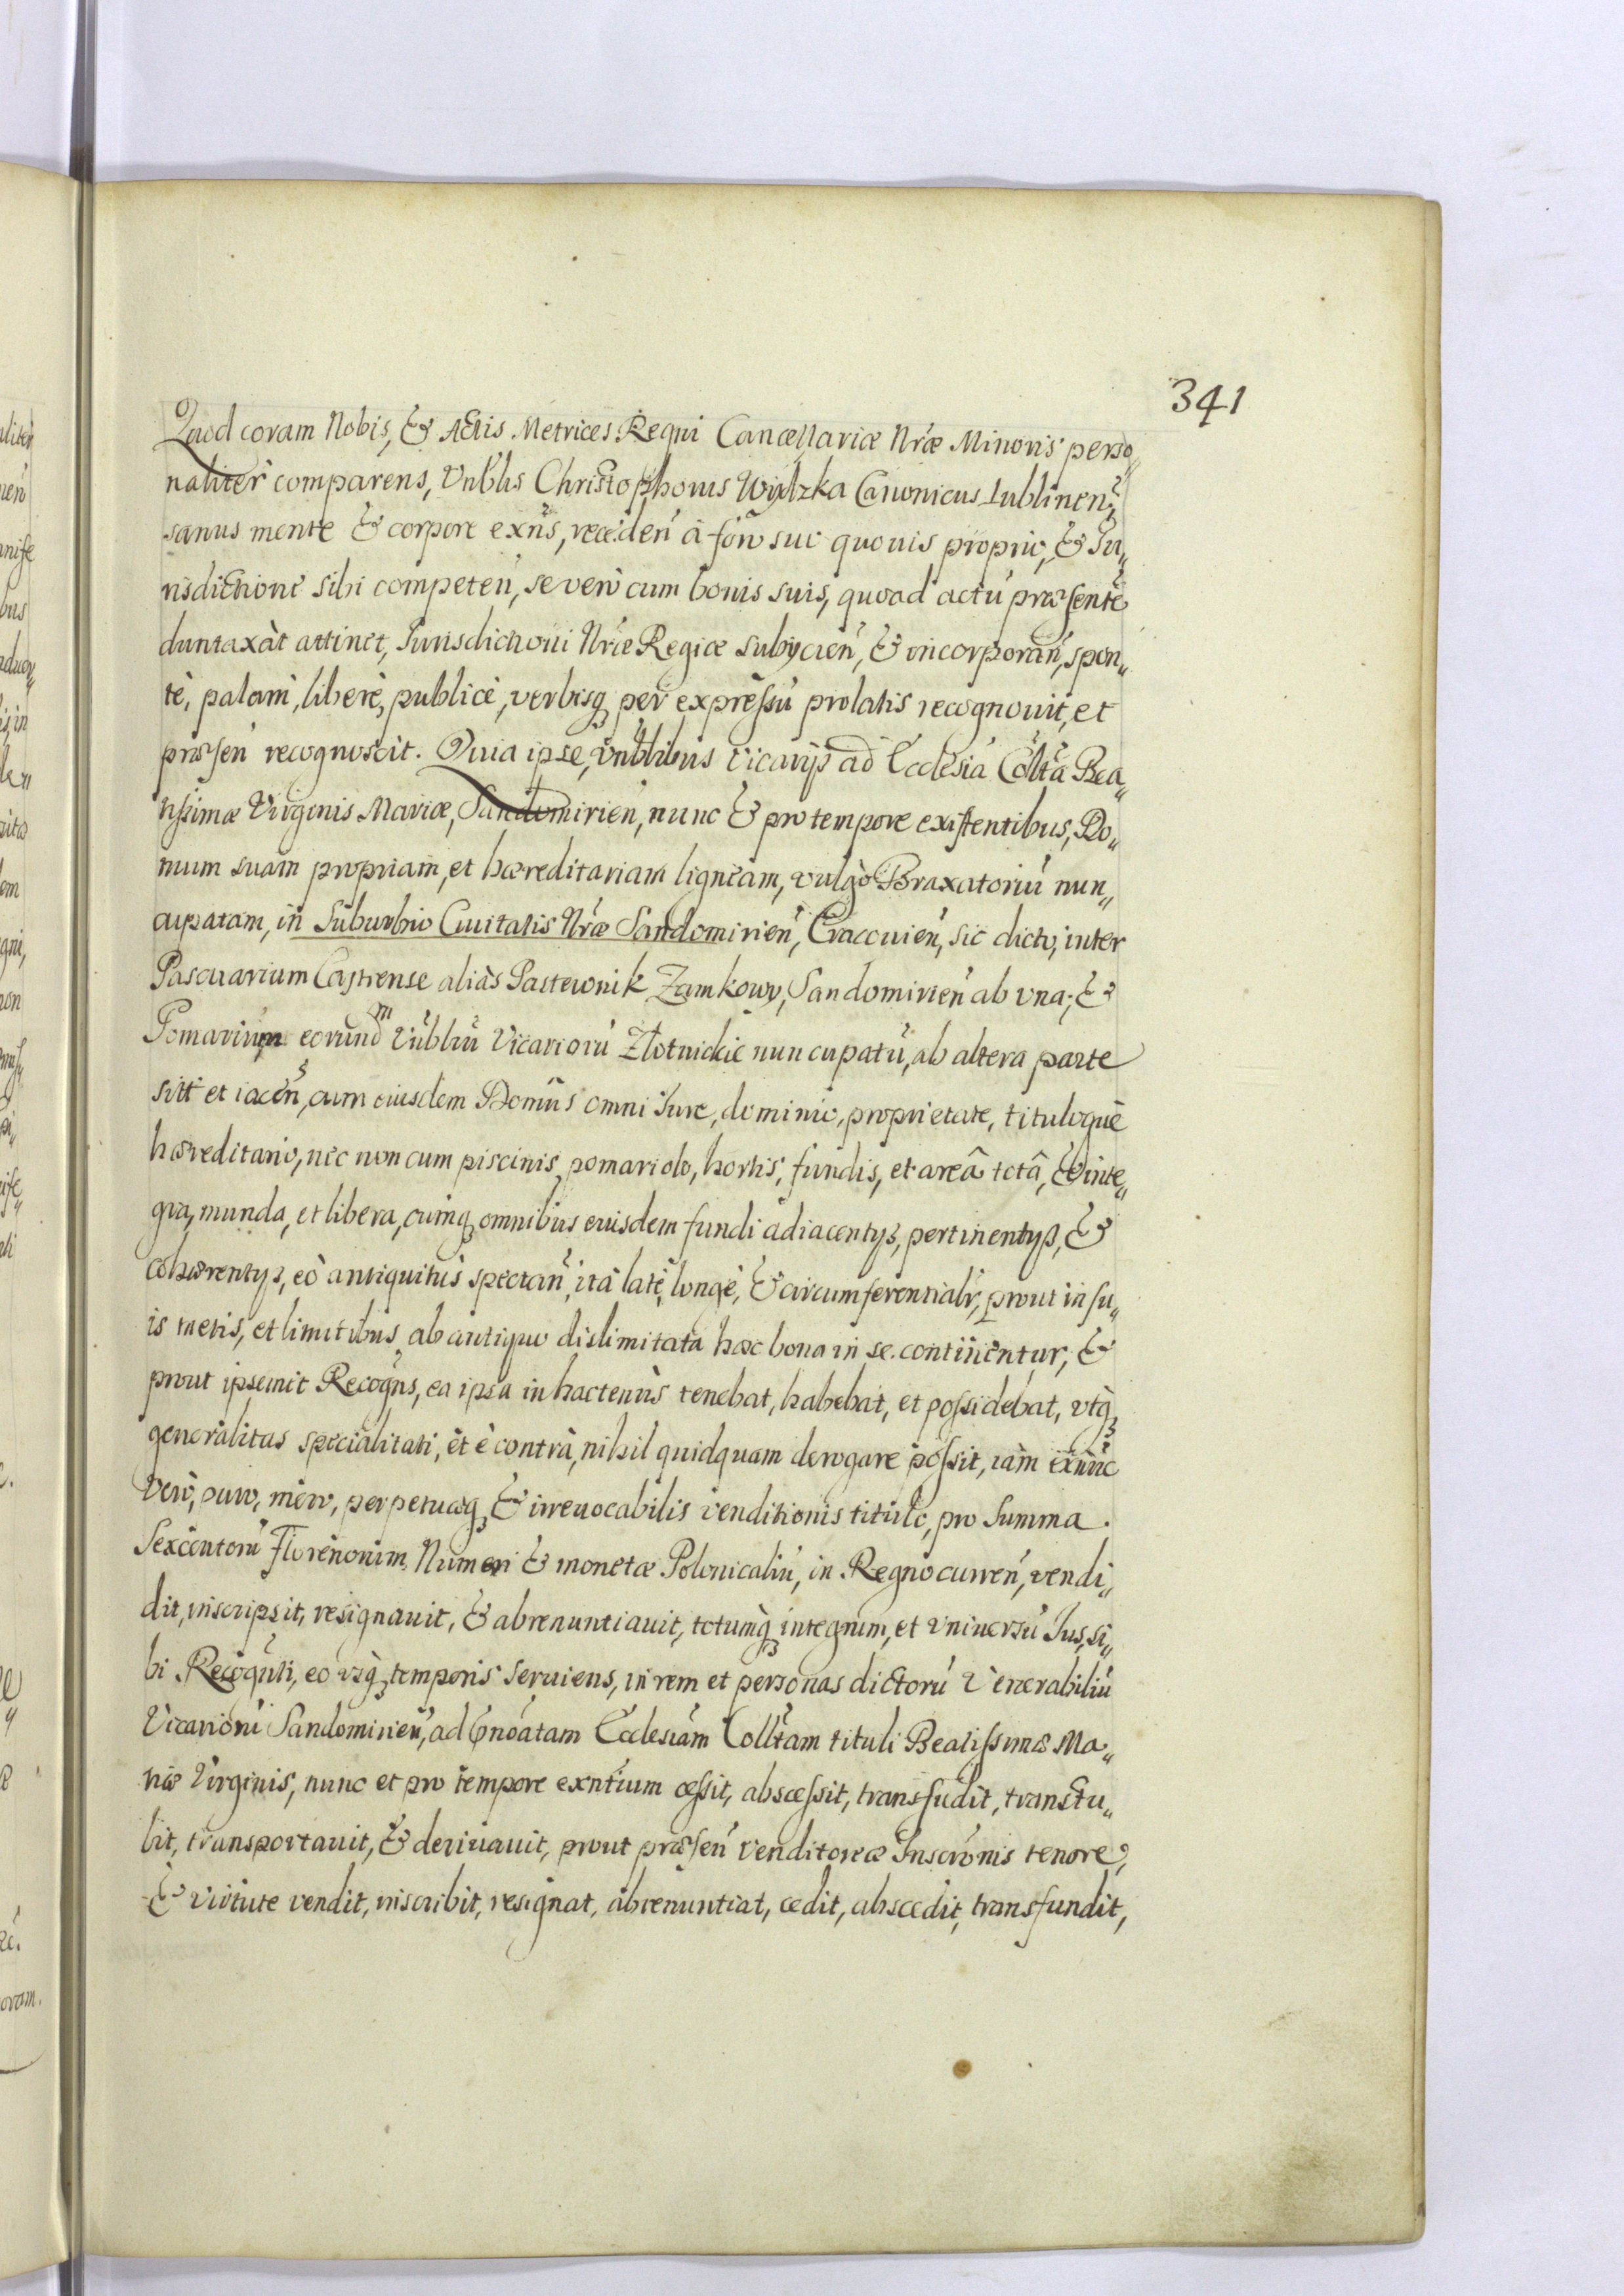 341
Quod coram Nobis, & Actis Metrices Regni Cancellariæ Nr̃æ Minoris perso„
naliter comparens, Vnblis Christophorus Wylzka Canonicus Lublineñ,
sanus mente & corpore exñs, recedeñ à foro suo quouis proprio, & Iu„
risdictione sibi competeñ, se verò cum bonis suis, quoad actũ præsentẽ
duntaxàt attinet, Iurisdictioni Nr̃æ Regiæ subÿcieñ, & incorporañ, spon„
tè, palam, liberè, publicè, verbisq₃ per expressũ prolatis recognouit, et
præseñ recognoscit. Quia ipse, Vnblibus Vicarijs ad Ecclesiã Colltã Bea„
tissimæ Virginis Mariæ, Sandomirieñ, nunc & pro tempore existentibus, Do„
mum suam propriam, et hæreditariam ligneam, vulgò Braxatoriũ nun„
cupatam, in Suburbio Ciuitatis Nr̃æ Sandomirieñ, Cracouieñ, sic dicto, inter
Pascuarium Castrense aliàs Pastewnik Zamkowy, Sandomirieñ ab vna; &
Pomarium eorundm Vnbliũ Vicariorũ Złotnickie nuncupatũ, ab altera parte
sitt et iaceñs, cum eiusdem Domûs omni Iure, dominio, proprietate, tituloquè
hæreditario, nec non cum piscinis, pomariolo, hortis, fundis, et areâ totâ, & inte„
gra, munda, et libera, cumq₃ omnibus euisdem fundi adiacentÿs, pertinentÿs, &
cohærentÿs, eò antiquitùs spectañ, ità latè, longè, & circumferentialr̃, prout in su„
is metis, et limitibus ab antiquo dislimitata hæc bona in se continentur, &
prout ipsemet Recogñs, ea ipsa in hactenùs tenebat, habebat, et possidebat, vtq₃
generalitas specialitati, et è contrà, nihil quidquam derogare possit, iàm exnũc
vero, puro, mero, perpetuoq₃ & irreuocabilis venditionis titulo, pro Summa
Sexcentorũ Florenorum Numeri & monetæ Polonicaliũ, in Regno curreñ, vendi„
dit, inscripsit, resignauit, & abrenuntiauit, totumq₃ integrum, et vniuersũ Ius, si„
bi Recognti, eo vsq₃ temporis seruiens, in rem et personas dictorũ Venerabiliũ
Vicariorũ Sandomirieñ, ad pnoatam Ecclesiam Colltam tituli Beatissimæ Ma„
riæ Virginis, nunc et pro tempore exntium cessit, abscessit, transfudit, transtu„
lit, transportauit, & deriuauit, prout præseñ venditoreæ Inscrõnis tenore,
& virtute vendit, inscribit, resignat, abrenuntiat, cedit, abscedit, transfundit,